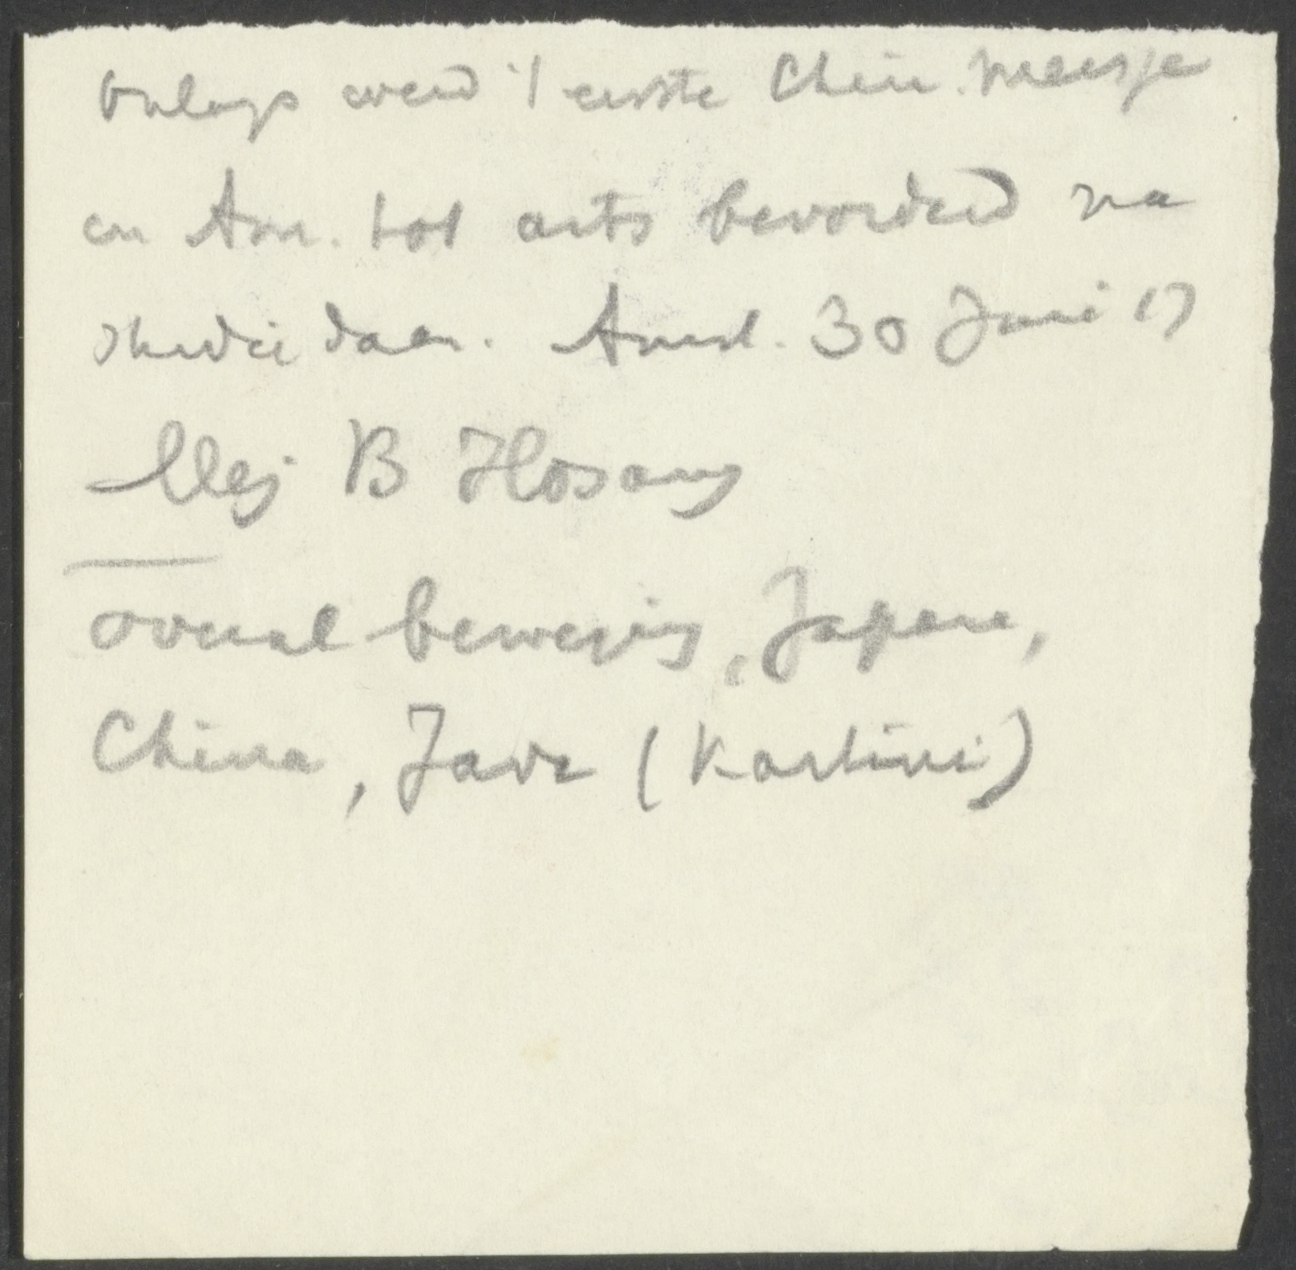 onlangs werd 't eerste Chin. meisje
in Am. tot arts bevorderd na
studie daar. Amst. 30 Juni 17
Mej B Hosang
overal beweging, Japan,
China, Java (Kartini)